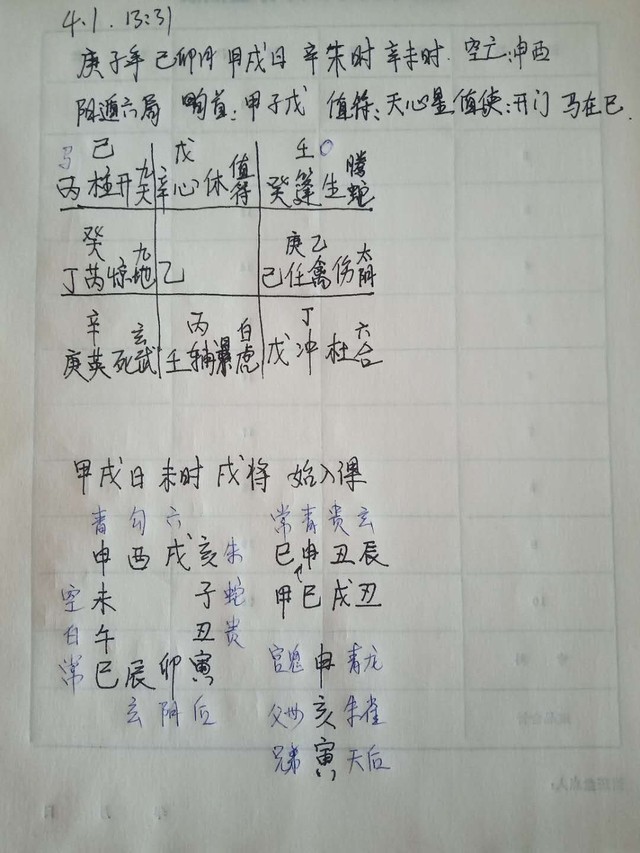 4.1. 13:31
庚子年 己卯月 甲戌日 辛未时 辛未时. 空亡:申酉
阳遁六局 旬首:甲子戊 值符:天心星 值使:开门 马在巳.
马 己 九天 戊 值符 壬 〇 腾蛇
丙 柱 开 辛 心 休 癸 篷 生
癸 九地 庚 乙 太阴
丁 芮 惊 乙 己 任 禽 伤
辛 玄武 丙 白虎 丁 六合
庚 英 死 壬 辅 景 戊 冲 杜
甲戌日 未时 戌将 始入课
青 勾 六 常 青 贵 玄
申 酉 戌 亥 朱 巳 申 丑 辰
空 未 子 蛇 甲 巳 戌 丑
白 午 丑 贵
常 巳 辰 卯 寅 官鬼 申 青龙
玄 阴 后 父母 亥 朱雀
兄弟 寅 天后